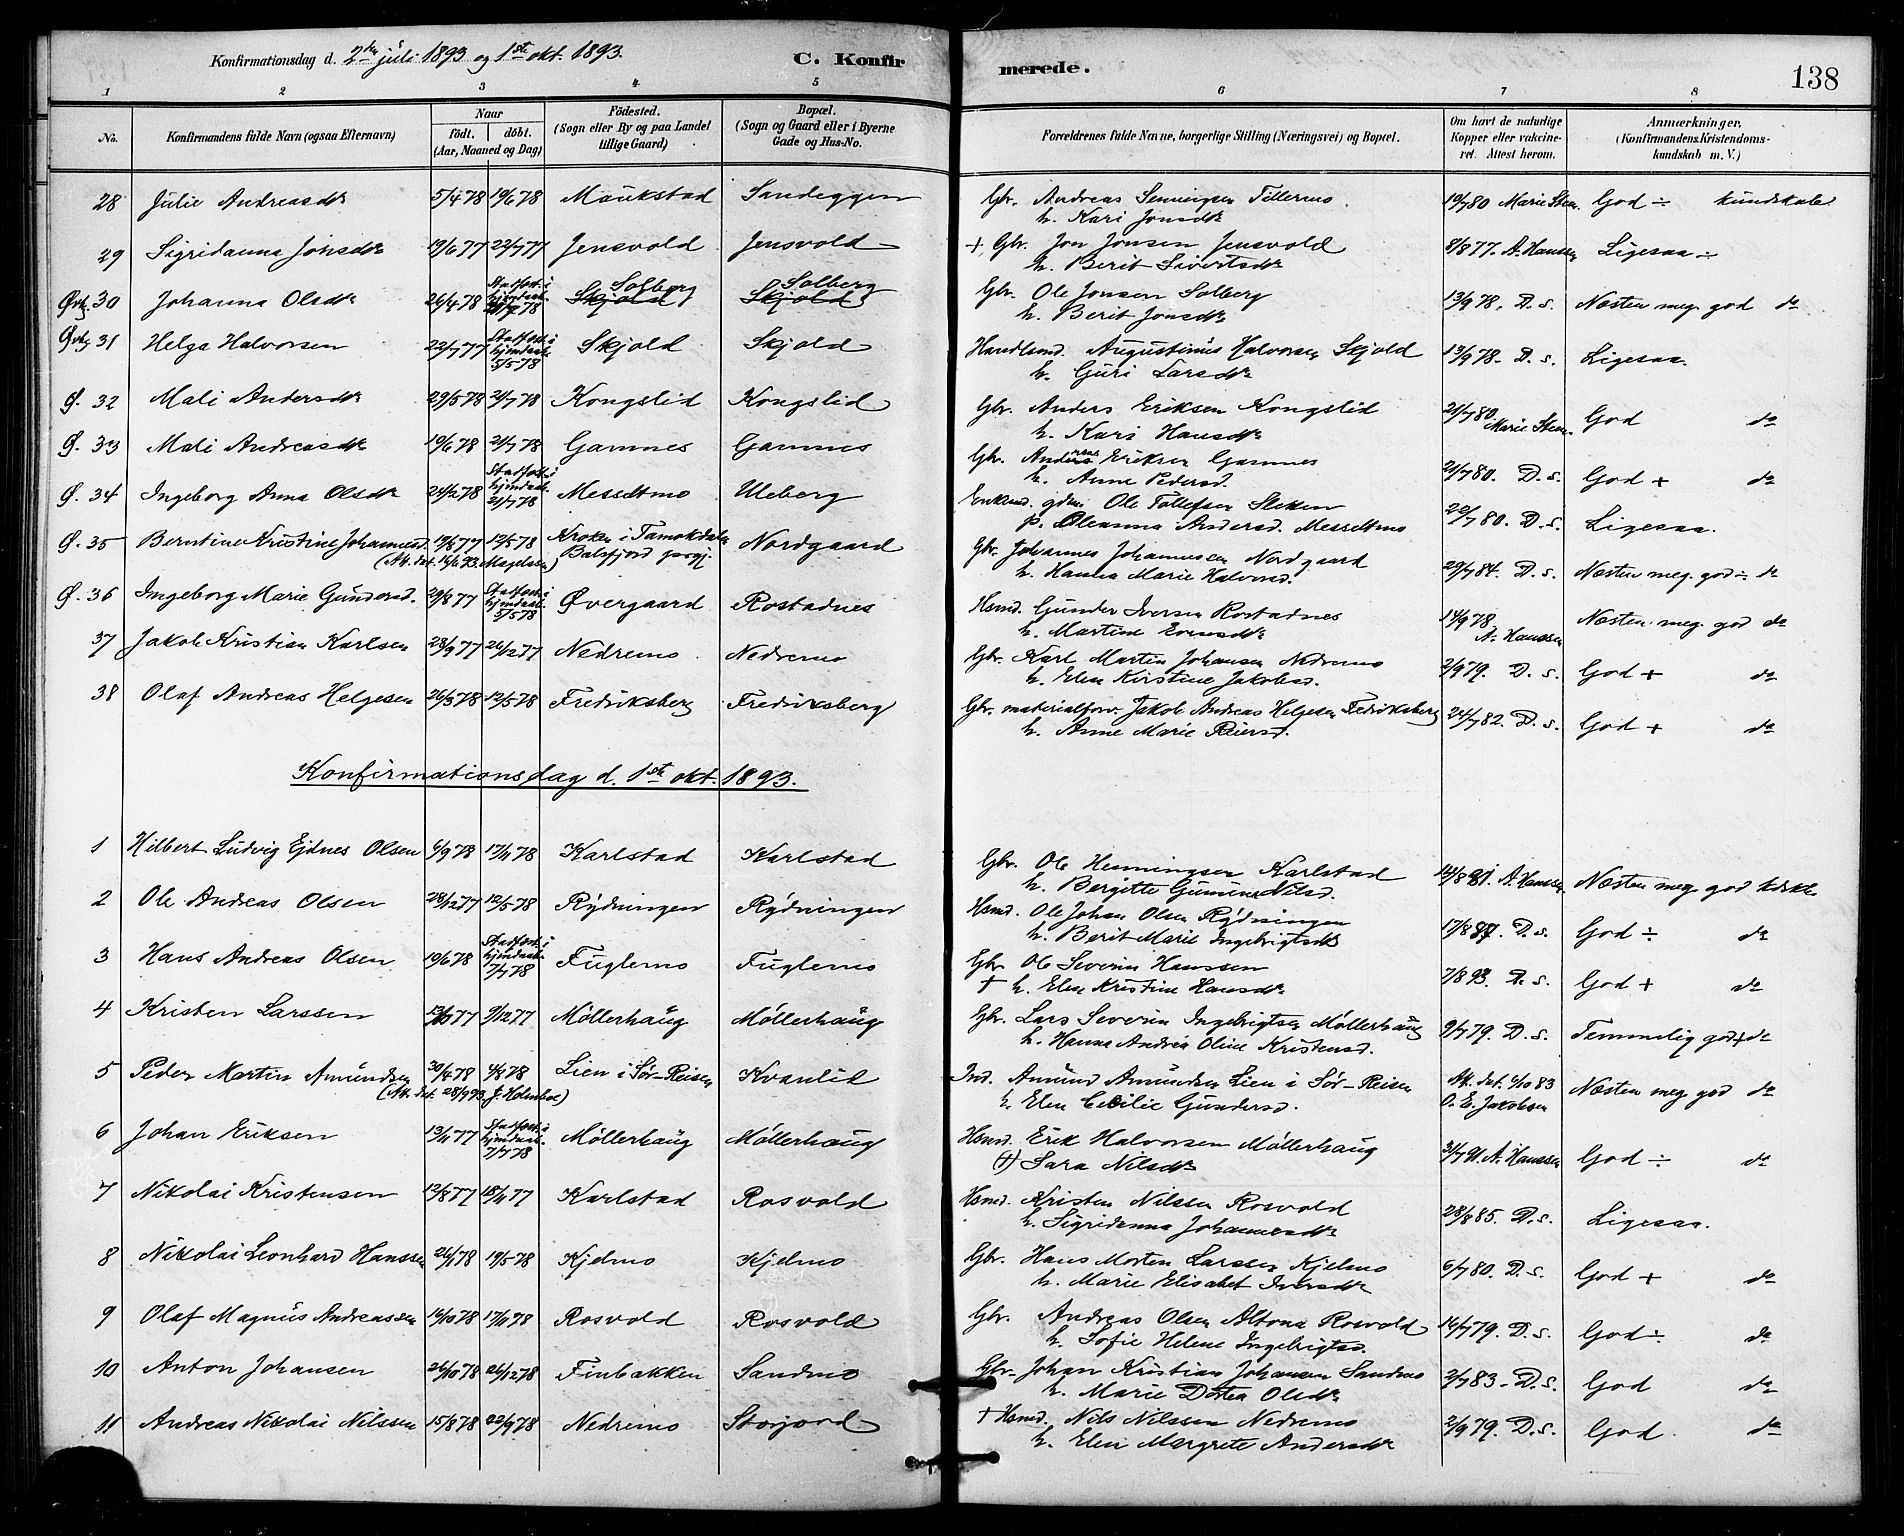 Konfirmationsdag d. 2den juli 1893 og 1ste okt. 1893.
C. Konfirmerede.
138
1 2 3 4 5 6 7 8
No.
Konfirmandens fulde Navn (ogsaa Efternavn)
Naar
födt. döbt.
(Aar, Maaned og Dag)
Födested.
(Sogn eller By og paa Landet
tillige Gaard)
Bopæl.
(Sogn og Gaard eller i Byerne
Gade og Hus-No.
Forældrenes fulde Navne, borgerlige Stilling (Næringsvei) og Bopæl.
Om havt de naturlige
Kopper eller vakcineret. Attest herom.
Anmærkninger,
(Konfirmandens Kristendomskundskab m. V.)
28 Julie Andreasdr 5/4 78 19/6 78 Maukstad Sandeggen Gbr. Andreas Henningsen Tillermo.
h. Kari Jonsdr 19/7 80 Marie Sten. God ÷ kundskaber
29 Sigridanna Jonsdr 19/6 77 22/7 77 Jensvold Jensvold + Gbr. Jon Jonsen Jensvold
h. Berit Sivertsdr 8/8 77. A. Hanssen Ligesaa ÷
30 Johanna Olsdr 26/4 78 Stadfest. i hjemdaab Solberg Solberg Gbr. Ole Jonsen Solberg
h. Berit Jonsdr 13/9 78. D. s. Næsten meg. god do
31 Helga Halvorsen 22/7 77 Stadfest. i hjemdaab 5/5 78 Skjold Skjold Handlsmd. Augustinus Halvorsen Skjold
h. Guri Larsdr 13/9 78. D. s. Ligesaa.
Ø. 32 Mali Andersdr 29/5 78 21/7 78 Kongslid Kongslid Gbr. Anders Eriksen Kongslid
h. Kari Hansdr 21/7 80. Marie Sten. God do
Ø. 33 Mali Andreasdr 19/6 78 21/7 78 Gamnes Gamnes Gbr. Andreas Eriksen Gamnes
h. Anne Pedersd. 21/7 80. D. s. God + do
Ø. 34 Ingeborg Anna Olsdr 24/2 78 Stadfest. i hjemdaab 21/7 78 Messeltmo Ueberg Enkemd. gdm. Ole Tollefsen Steken
p. Oleanna Andersd. Messeltmo 22/7 80. D. s. Ligesaa.
Ø. 35 Berntine Kristine Johannesd. 19/8 77 12/5 78 Kroken i Tamokdalen Nordgaard
(At. dat. 16/6 93. Magelssen) Balsfjord prgj.
Gbr. Johannes Johannessen Nordgaard
h. Hanna Marie Halvorsd. 29/7 84. D. s. Næsten meg. god ÷ do
Ø. 36 Ingeborg Marie Gundersd. 29/8 77 Stadfest. i hjemdaab 5/5 78 Øvergaard Rostadnes Hsmd. Gunder Iversen Rostadnes
h. Martine Evensdr 14/9 78 A. Hanssen Næsten meg. god do
37 Jakob Kristian Karlsen 28/9 77 26/12 77 Nedremo Nedremo Gbr. Karl Martin Johansen Nedremo
h. Elen Kirstine Jakobsd. 2/9 79. D. s. God + do
38 Olaf Andreas Helgesen 26/3 78 12/5 78 Fredriksberg Fredriksberg Gbr. materialforv. Jakob Andreas Helgesen Fedriksberg
h. Anne Marie Peiersd. 24/7 82. D. s. God + do
Konfirmationsdag d. 1ste okt. 1893.
1 Hilbert Ludvig Ejdnes Olsen 6/9 78 17/11 78 Karlstad Karlstad Gbr. Ole Henningsen Karlstad
h. Bergitte Nilsd. 14/8 81. A. Hanssen Næsten meg god
2 Ole Andreas Olsen 28/12 77 12/5 78 Rydningen Rydningen Hsmd. Ole Johan Olsen Rydningen
h. Berit Marie Ingebrigtsdr 17/8 87. D. s. God ÷ do
3 Hans Andreas Olsen 19/6 78 Stadfest. i hjemdaab 7/7 78 Fuglemo Fuglemo Gbr Ole Severin Hanssen
+ h. Elen Kristine Hansdr 7/8 93. D. s. God + do
4 Kristen Larssen 77 9/12 77 Møllerhaug Møllerhaug Gbr. Lars Severin Ingebrigtsen Møllerhaug
h. Hanna Andrea Oline Kristensd. 9/7 79. D. s. Temmelig god + do
5 Peder Martin Amundsen 30/4 78 4/8 78 Lien i Sør-Reisen Kvanlid
(At. dat. 28/9 93. J. Holmboe)
Ind. Amund Amundsen Lien i Sør-Reisen
h. Elen Cecilie Gundersd. At. dat. 6/10 83 O. E. Jakobsen Næsten meg god do
6 Johan Eriksen 13/11 77 Stadfest. i hjemdaab 7/7 78 Møllerhaug Møllerhaug Hsmd. Erik Halvorsen Møllerhaug
(+) Sara Nilsdr 31/7 91 A. Hanssen God ÷ do
7 Nikolai Kristensen 13/8 77 18/11 77 Karlstad Rosvold Hsmd. Kristen Nilssen Rosvold
h. Sigridanna Johannesdr 28/8 85. D. s. Ligesaa.
8 Nikolai Leonhard Hanssen 26/1 78 19/5 78 Kjelmo Kjelmo Gbr. Hans Morten Larssen Kjelmo
h. Marie Elisabet Iversdr 6/7 80. D. s. God + do
9 Olaf Magnus Andreassen 16/10 78 17/11 78 Rosvold Rosvold Gbr. Andreas Olsen Altona Rosvold
h. Sofie Helene Ingebrigtsd. 16/7 79. D. s. God ÷ do
10 Anton Johansen 26/10 78 26/12 78 Finbakken Sandmo Gbr. Johan Kristian Johansen Sandmo
h. Marie Dortea Olsdr 2/7 83 - D. s. God do
11 Andreas Nikolai Nilssen 15/8 78 22/9 78 Nedremo Storjord + Hsmd. Nils Nilssen Nedremo
h. Elen Margrete Andersdr 2/9 79. D. s. God. do